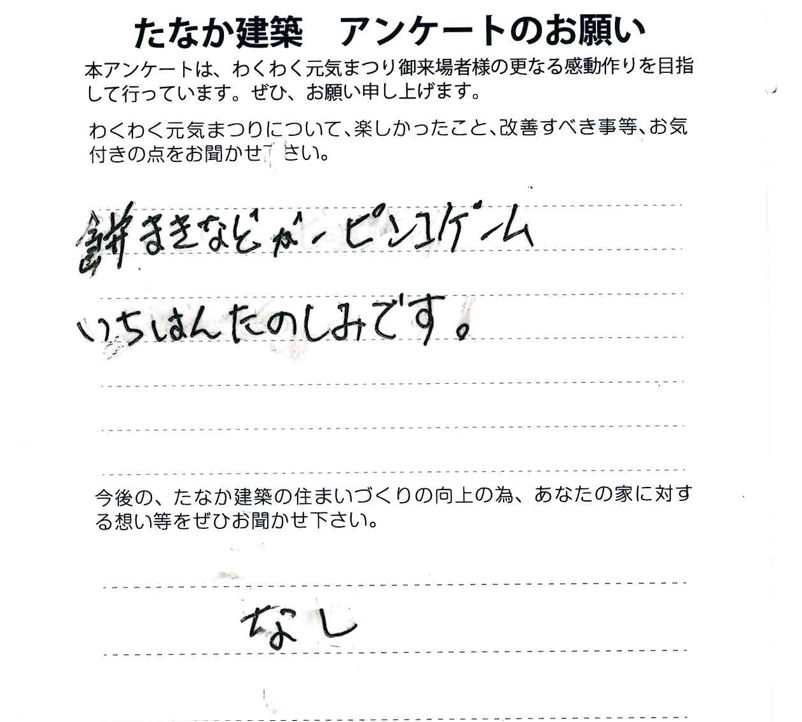 たなか建築　アンケートのお願い
本アンケートは、わくわく元気まつり御来場者様の更なる感動作りを目指
して行っています。ぜひ、お願い申し上げます。
わくわく元気まつりについて、楽しかったこと、改善すべき事等、お気
付きの点をお聞かせ下さい。
餅まきなどがービンゴゲーム
いちはんたのしみです。
今後の、たなか建築の住まいづくりの向上の為、あなたの家に対す
る想い等をぜひお聞かせ下さい。
なし